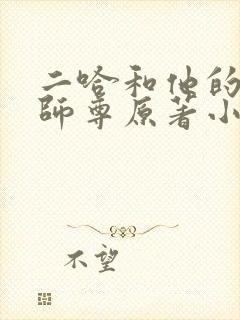 二哈和他的
師尊原著小
不望